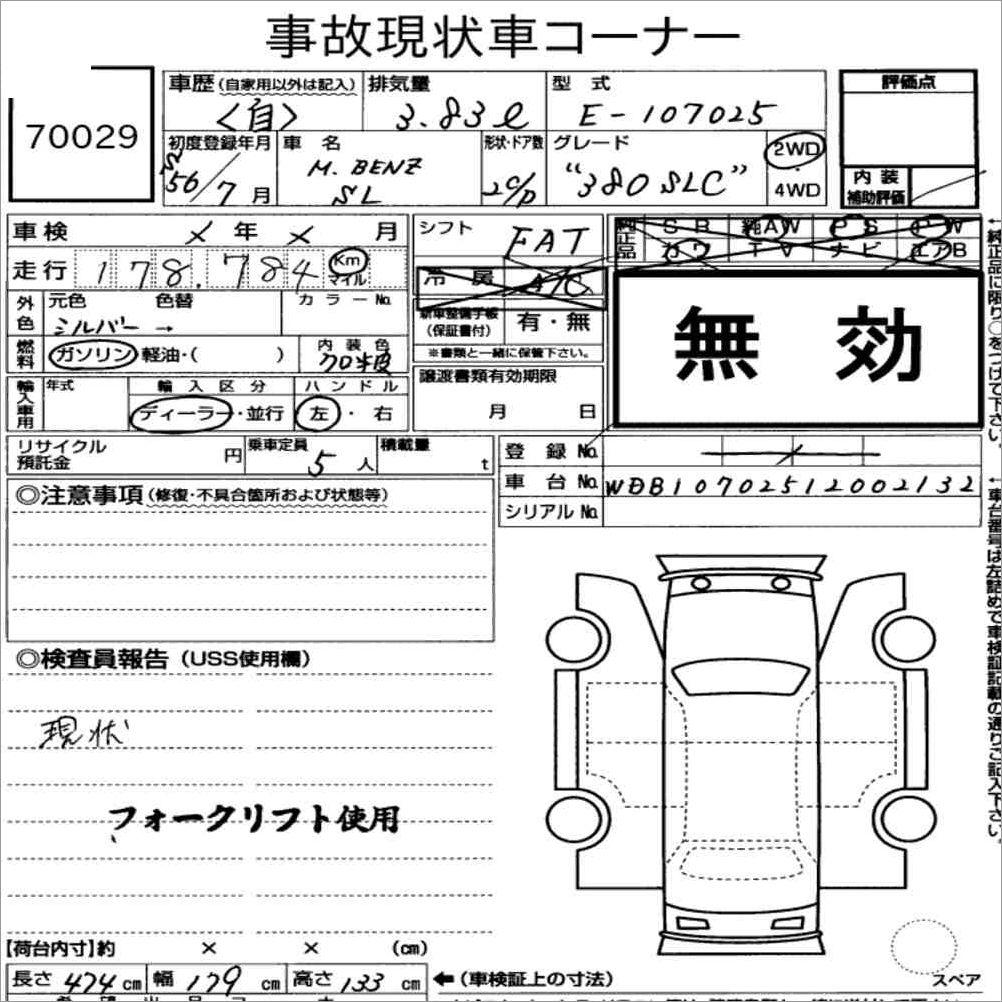 事故現状車コーナー
70029
車歴(自家用以外は記入)
<自>
排気量
3.83ℓ
型式
E-107025
評価点
初度登録年月
S
56/7月
車名
M.BENZ
SL
形状・ドア数
2C/D
グレード
"380SLC"
2WD
4WD
内装
補助評価
車検 × 年 × 月
走行 178.784 Km
マイル
シフト
FAT
冷房 A/C
純正品
SR 純AW PS PW
カワ TV ナビ エアB
外色
元色 色替
シルバー →
カラーNo.
新車整備手帳
(保証書付)
有・無
※書類と一緒に保管下さい。
無効
燃料
ガソリン 軽油・( )
内装色
クロ半皮
輸入車用
年式
輸入区分
ディーラー・並行
ハンドル
左・右
譲渡書類有効期限
月 日
リサイクル
預託金
円
乗車定員
5人
積載量
t
登録No.
車台No. WDB10702512002132
シリアルNo.
←純正品に限り○をつけて下さい。
←車台番号は左詰めで車検証記載の通りご記入下さい。
◎注意事項(修復・不具合箇所および状態等)
◎検査員報告(USS使用欄)
現状
フォークリフト使用
【荷台内寸】約 × × (cm)
長さ 474cm 幅 179cm 高さ 133cm ←(車検証上の寸法)
スペア